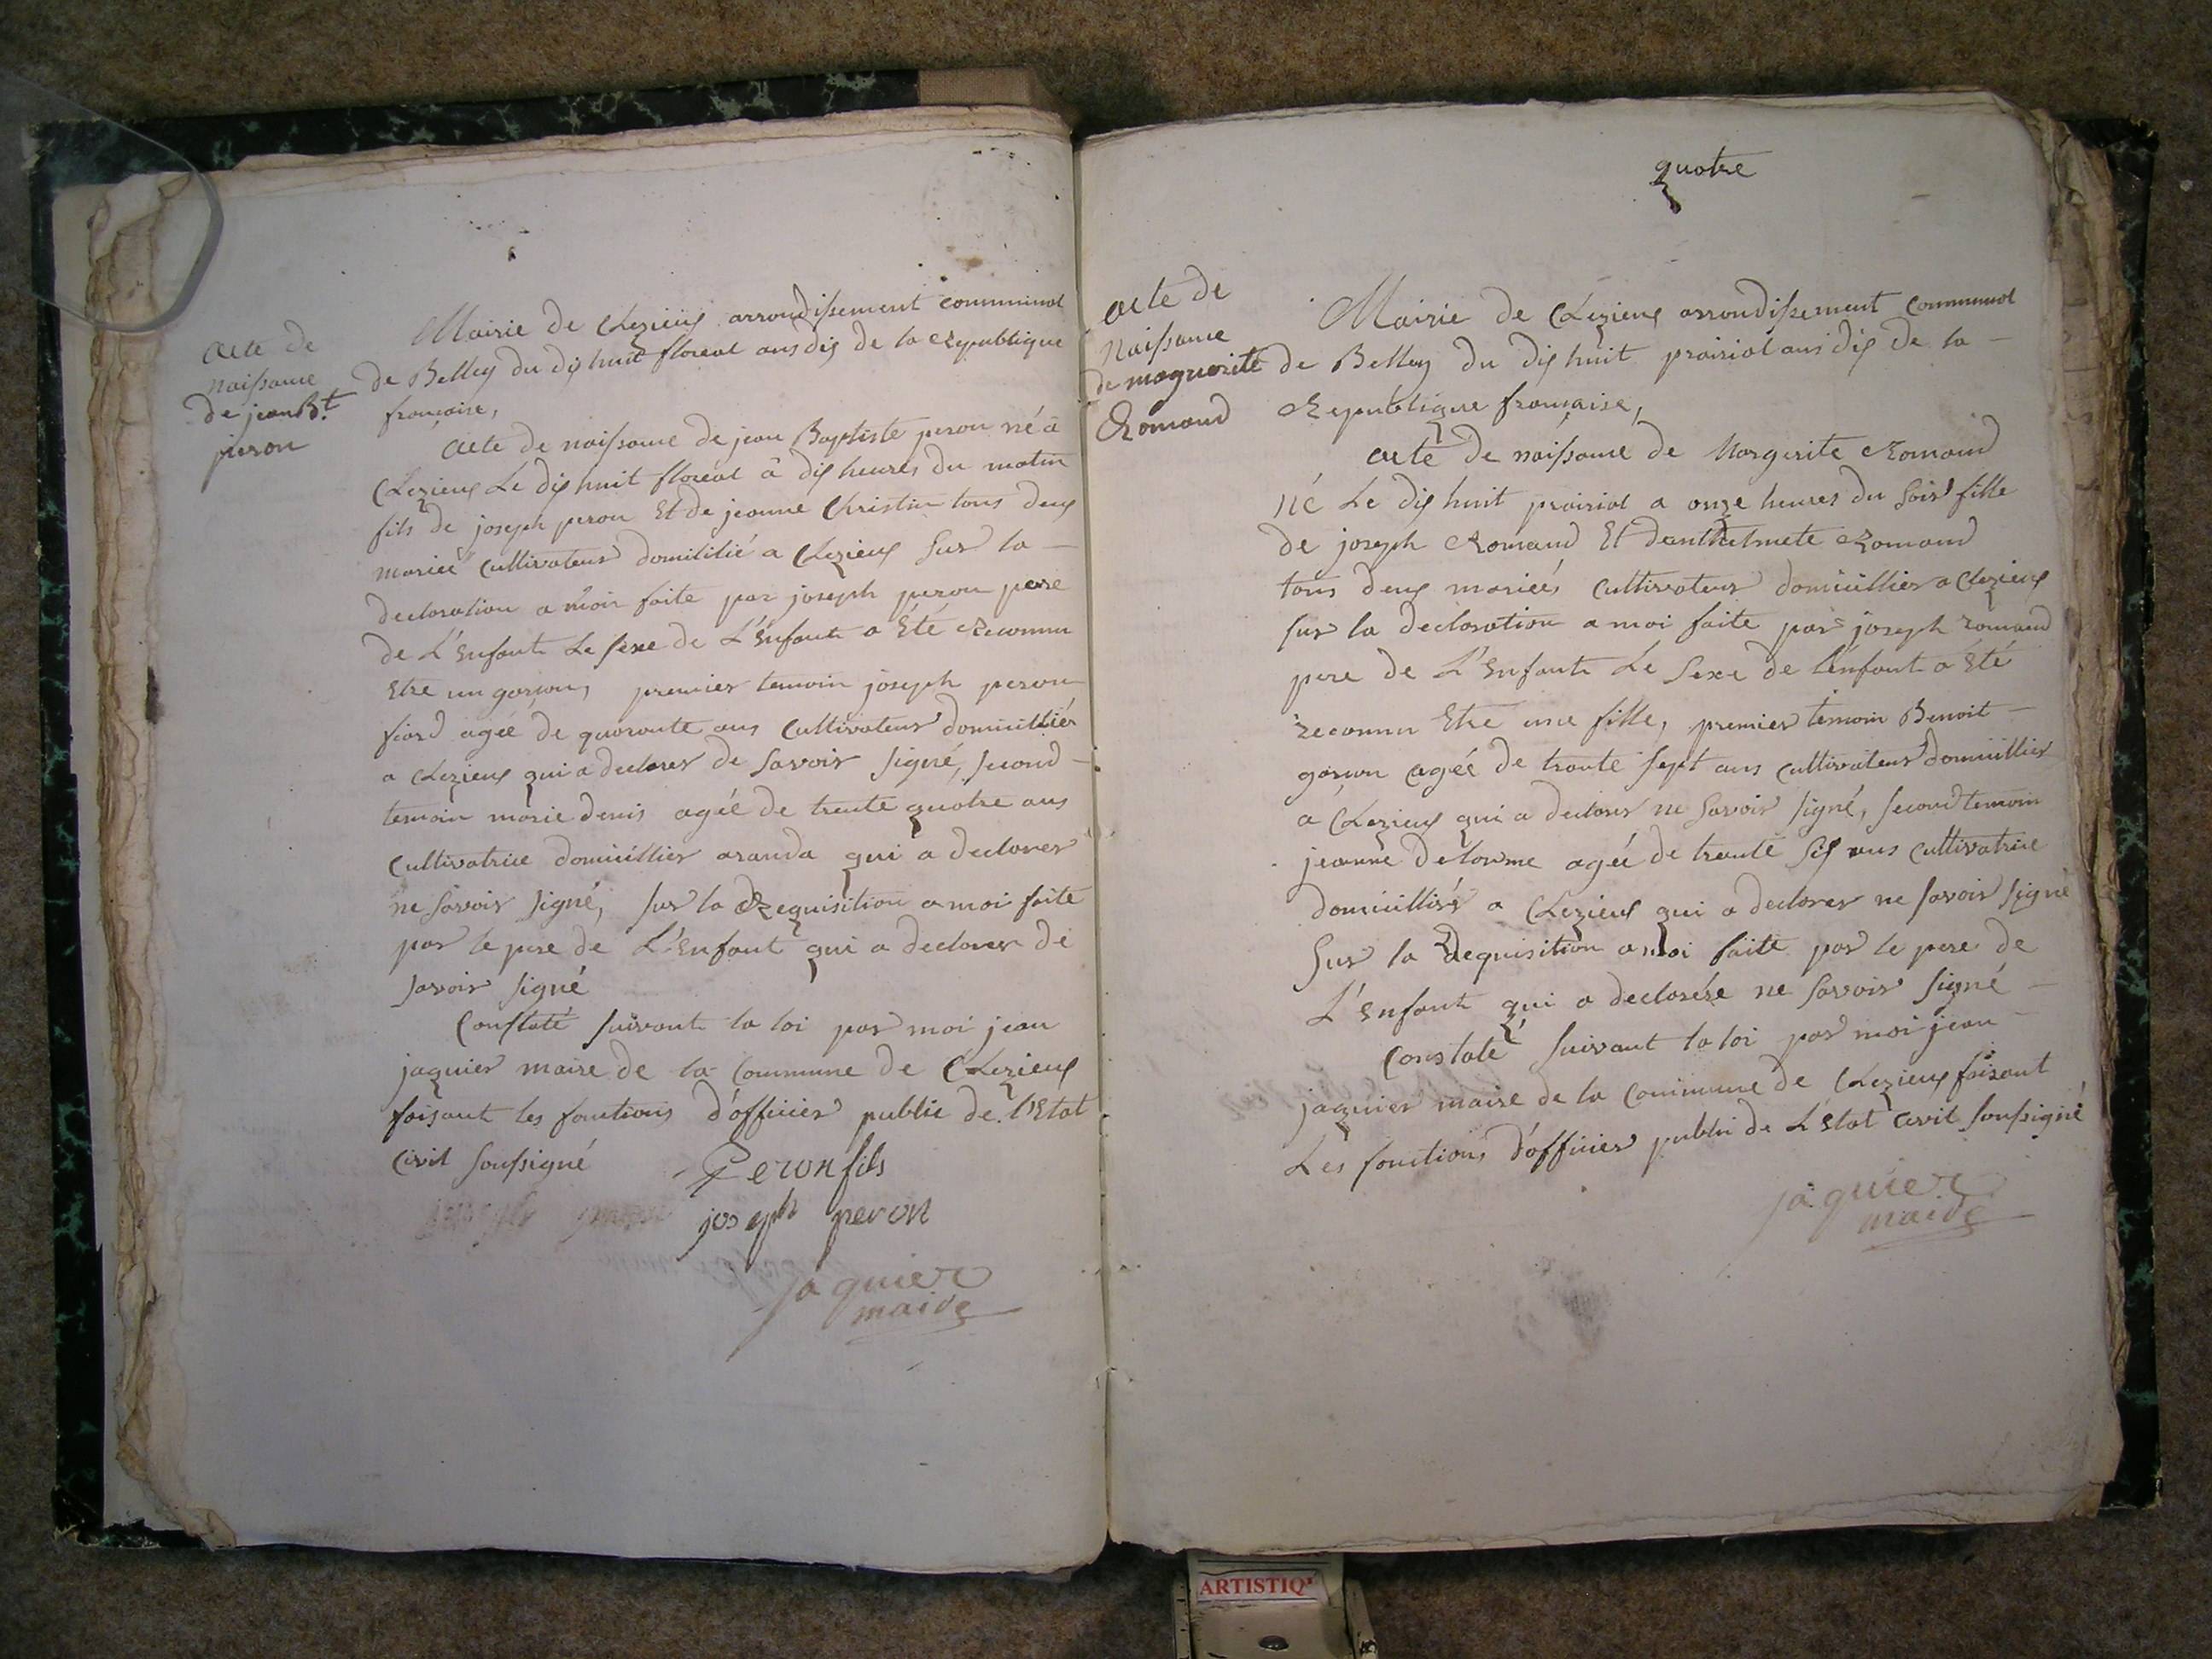 acte de
naissance
de jean Bt.
peron
Mairie de Clezieux arrondissement communal
de Belley du dix huit floreal ans dix de la Republique
française,
acte de naissance de jean Baptiste peron né à
Clezieux Le dix huit floreal à dix heures du matin
fils de joseph peron Et de jeanne Christin tous deux
mariée Cultivateur domicilié a Clezieux sur la —
declaration a moir faite par joseph peron pere
de L'Enfant Le sexe de L'Enfant a Eté Reconnu
Etre un garçon, premier temoin joseph peron
agée de quarante ans Cultivateur domicilliér
a Clezieux qui a declarer de savoir signé, second —
temoin marie denis agée de trente quatre ans
Cultivatrice domicillier aranda qui a declarer
ne savoir signé, sur la Requisition a moi faite
par le pere de L'Enfant qui a declarer de
savoir signé
Constaté suivant la loi par moi jean
jaquier maire de la Commune de Clezieux
faisant les fonctions d'officier public de l'Etat
Civil soussigné
Peron fils
joseph peron
jaquier
maire
quatre
acte de
Naissance
de marguerite
Romand
Mairie de Clezieux arrondissement Communal
de Belley du dix huit prairial ans dix de la —
Republique française,
acte de naissance de Margerite Romand
né Le dix huit prairial a onze heures du soir fille
de joseph Romand Et danthelmete Romand
tous deux mariées Cultivateur domicillier a Clezieux
sur la declaration a moi faite par joseph romand
pere de L'Enfant Le sexe de L'énfant a Eté
reconnu Etre une fille, premier temoin Benoit —
garçon agée de trante sept ans cultivateur domicillier
a Clezieux qui a declarer ne savoir signé, second temoin
jeanne delorme agée de trante six ans cultivatrice
domicilliré a Clezieux qui a declarer ne savoir signé
sur la Requisition a moi faite par le pere de
L'enfant qui a declarére ne savoir signé —
Constaté suivant la loi par moi jean —
jaquier maire de la Commune de Clezieux faisant
Les fonctions d'officier public de L'Etat Civil soussigné
jaquier
maire
ARTISTIQ